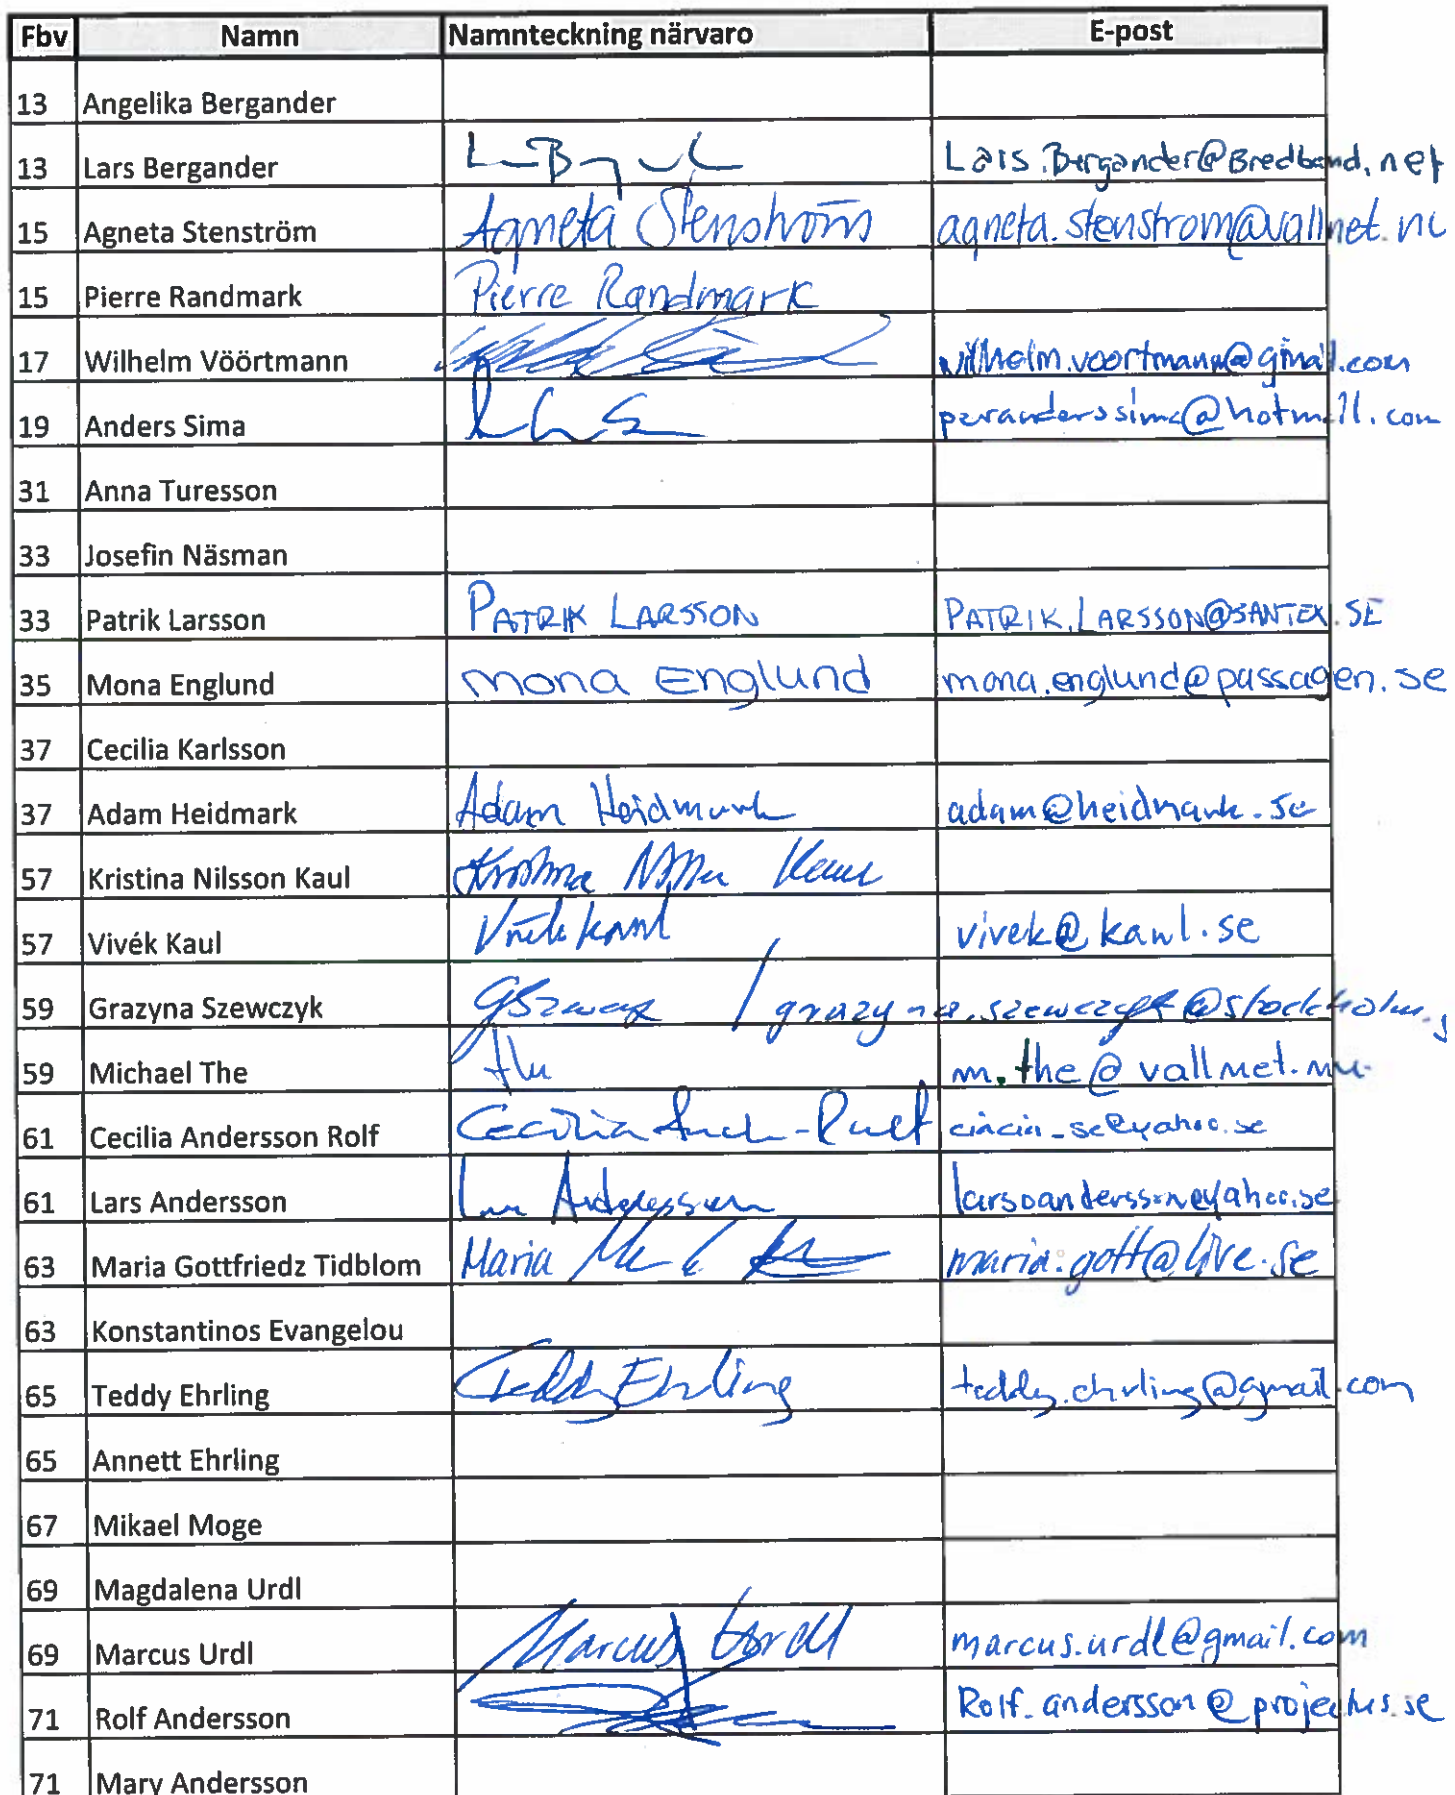 Fbv Namn Namnteckning närvaro E-post
13 Angelika Bergander
13 Lars Bergander Lars.Bergander@Bredband.net
15 Agneta Stenström Agneta Stenström agneta.stenstrom@vallnet.nu
15 Pierre Randmark Pierre Randmark
17 Wilhelm Vöörtmann wilhelm.voortmann@gmail.com
19 Anders Sima peranderssima@hotmail.com
31 Anna Turesson
33 Josefin Näsman
33 Patrik Larsson PATRIK LARSSON PATRIK.LARSSON@SANTEX.SE
35 Mona Englund mona Englund mona.englund@passagen.se
37 Cecilia Karlsson
37 Adam Heidmark Adam Heidmark adam@heidmark.se
57 Kristina Nilsson Kaul Kristina Nilsson Kaul
57 Vivék Kaul Vivek Kaul vivek@kaul.se
59 Grazyna Szewczyk / grazyna.szewczyk@stockholm.s
59 Michael The The m.the@vallnet.nu
61 Cecilia Andersson Rolf Cecilia cincin_se@yahoo.se
61 Lars Andersson Lars Andersson larsoandersson@yahoo.se
63 Maria Gottfriedz Tidblom Maria maria.gott@live.se
63 Konstantinos Evangelou
65 Teddy Ehrling Teddy Ehrling teddy.ehrling@gmail.com
65 Annett Ehrling
67 Mikael Moge
69 Magdalena Urdl
69 Marcus Urdl Marcus Urdl marcus.urdl@gmail.com
71 Rolf Andersson Rolf.andersson@projectus.se
71 Mary Andersson